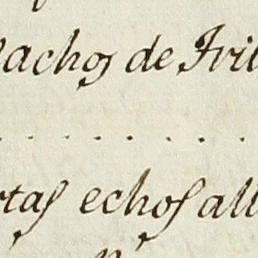 lachos de Tri
rtas echos all